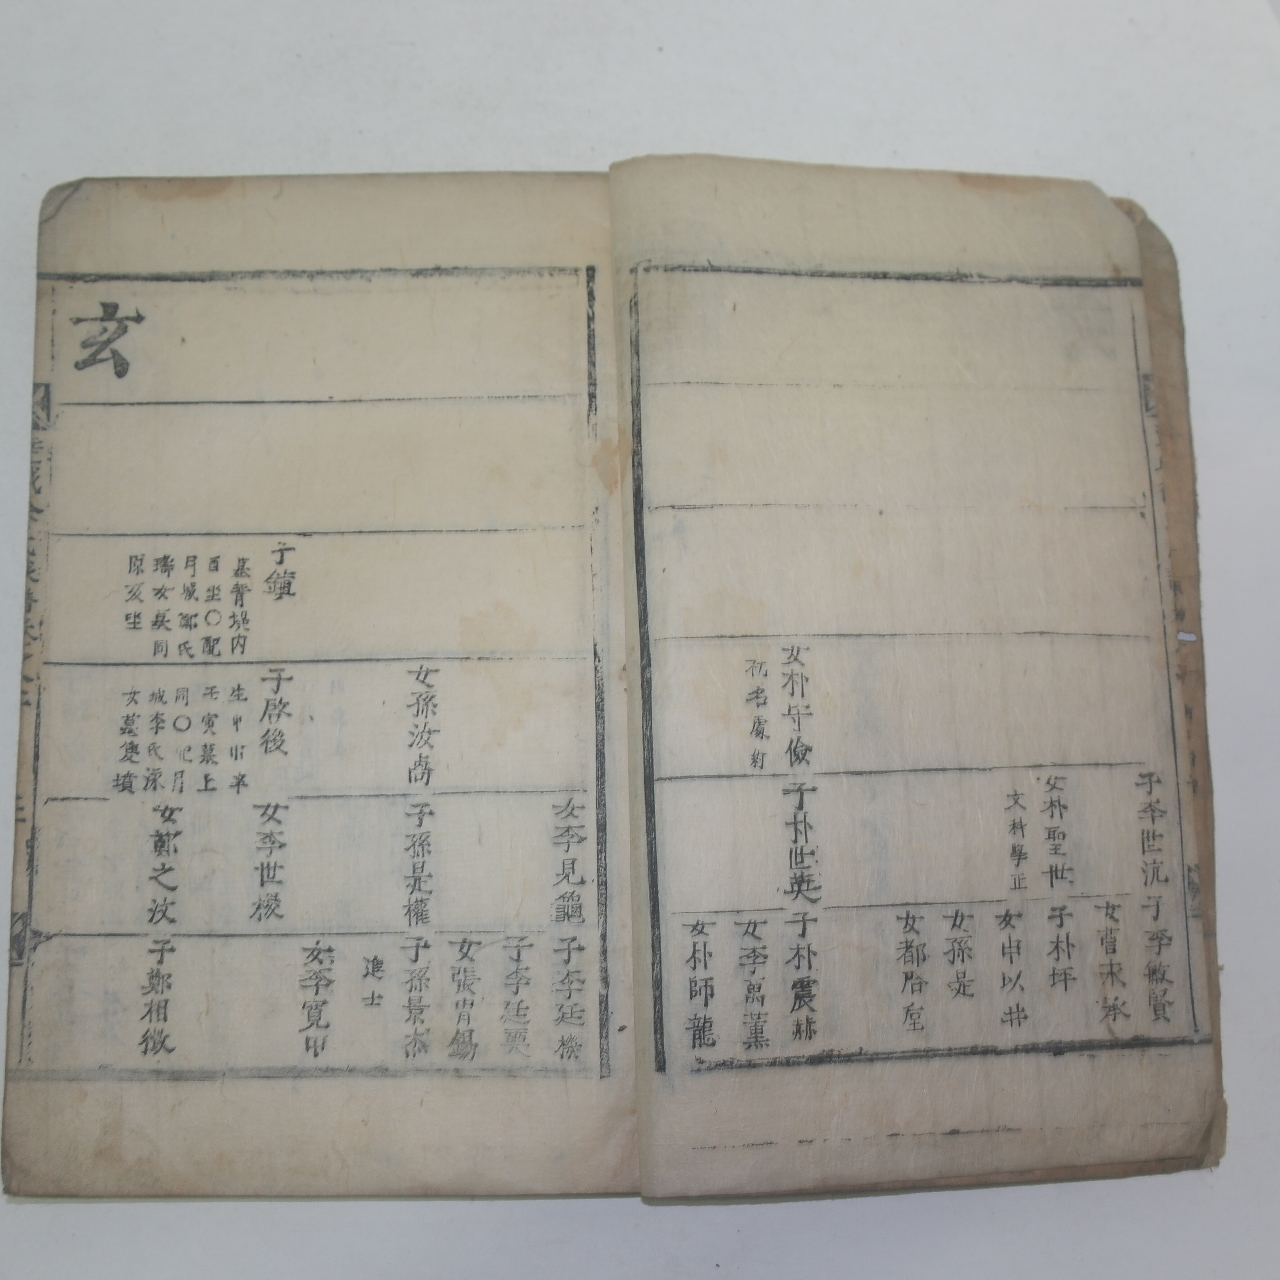 子李世沆
女朴聖世
文科學正
女朴守儉
初名處約
子朴世英
子李敏賢
女曺禾承
子朴坪
女申以井
子孫是
女都胎
子朴震赫
女李萬薰
女朴師龍
女李見龜
子李廷機
子李廷奭
女張胄錫
女孫汝
子孫是權
子孫景杰
進士
女李寬甲
子鎮
墓靑堤内
酉坐〇配
月城鄭氏
璹女墓同
原亥坐
子啓後
生甲申卒
壬寅墓上
同〇配月
城李氏
女墓雙墳
女李世機
女鄭之汶
子鄭相徵
玄